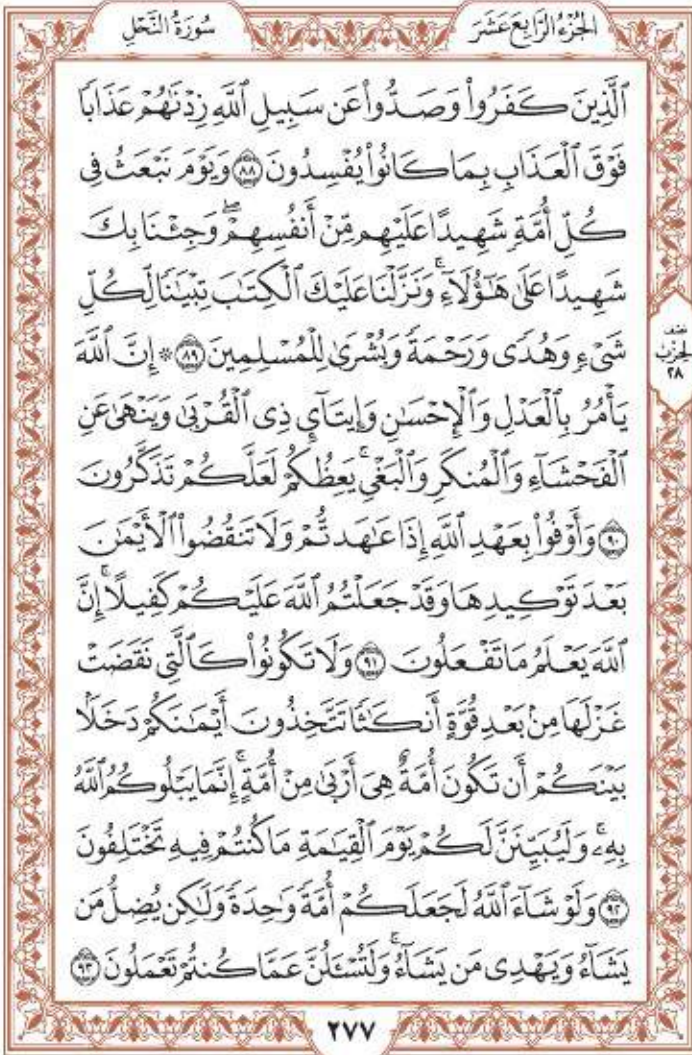 الجُزْءُ الرَّابِعَ عَشَرَ
سُورَةُ النَّحْلِ
ٱلَّذِينَ كَفَرُواْ وَصَدُّواْ عَن سَبِيلِ ٱللَّهِ زِدْنَٰهُمْ عَذَابٗا
فَوْقَ ٱلْعَذَابِ بِمَا كَانُواْ يُفْسِدُونَ ۝٨٨ وَيَوْمَ نَبْعَثُ فِي
كُلِّ أُمَّةٖ شَهِيدًا عَلَيْهِم مِّنْ أَنفُسِهِمْۖ وَجِئْنَا بِكَ
شَهِيدًا عَلَىٰ هَٰٓؤُلَآءِۚ وَنَزَّلْنَا عَلَيْكَ ٱلْكِتَٰبَ تِبْيَٰنٗا لِّكُلِّ
شَيْءٖ وَهُدٗى وَرَحْمَةٗ وَبُشْرَىٰ لِلْمُسْلِمِينَ ۝٨٩ ۞ إِنَّ ٱللَّهَ
يَأْمُرُ بِٱلْعَدْلِ وَٱلْإِحْسَٰنِ وَإِيتَآيِٕ ذِي ٱلْقُرْبَىٰ وَيَنْهَىٰ عَنِ
ٱلْفَحْشَآءِ وَٱلْمُنكَرِ وَٱلْبَغْيِۚ يَعِظُكُمْ لَعَلَّكُمْ تَذَكَّرُونَ
۝٩٠ وَأَوْفُواْ بِعَهْدِ ٱللَّهِ إِذَا عَٰهَدتُّمْ وَلَا تَنقُضُواْ ٱلْأَيْمَٰنَ
بَعْدَ تَوْكِيدِهَا وَقَدْ جَعَلْتُمُ ٱللَّهَ عَلَيْكُمْ كَفِيلًاۚ إِنَّ
ٱللَّهَ يَعْلَمُ مَا تَفْعَلُونَ ۝٩١ وَلَا تَكُونُواْ كَٱلَّتِي نَقَضَتْ
غَزْلَهَا مِنۢ بَعْدِ قُوَّةٍ أَنكَٰثٗا تَتَّخِذُونَ أَيْمَٰنَكُمْ دَخَلَۢا
بَيْنَكُمْ أَن تَكُونَ أُمَّةٌ هِيَ أَرْبَىٰ مِنْ أُمَّةٍۚ إِنَّمَا يَبْلُوكُمُ ٱللَّهُ
بِهِۦۚ وَلَيُبَيِّنَنَّ لَكُمْ يَوْمَ ٱلْقِيَٰمَةِ مَا كُنتُمْ فِيهِ تَخْتَلِفُونَ
۝٩٢ وَلَوْ شَآءَ ٱللَّهُ لَجَعَلَكُمْ أُمَّةٗ وَٰحِدَةٗ وَلَٰكِن يُضِلُّ مَن
يَشَآءُ وَيَهْدِي مَن يَشَآءُۚ وَلَتُسْـَٔلُنَّ عَمَّا كُنتُمْ تَعْمَلُونَ ۝٩٣
نصف
الحزب
٢٨
٢٧٧